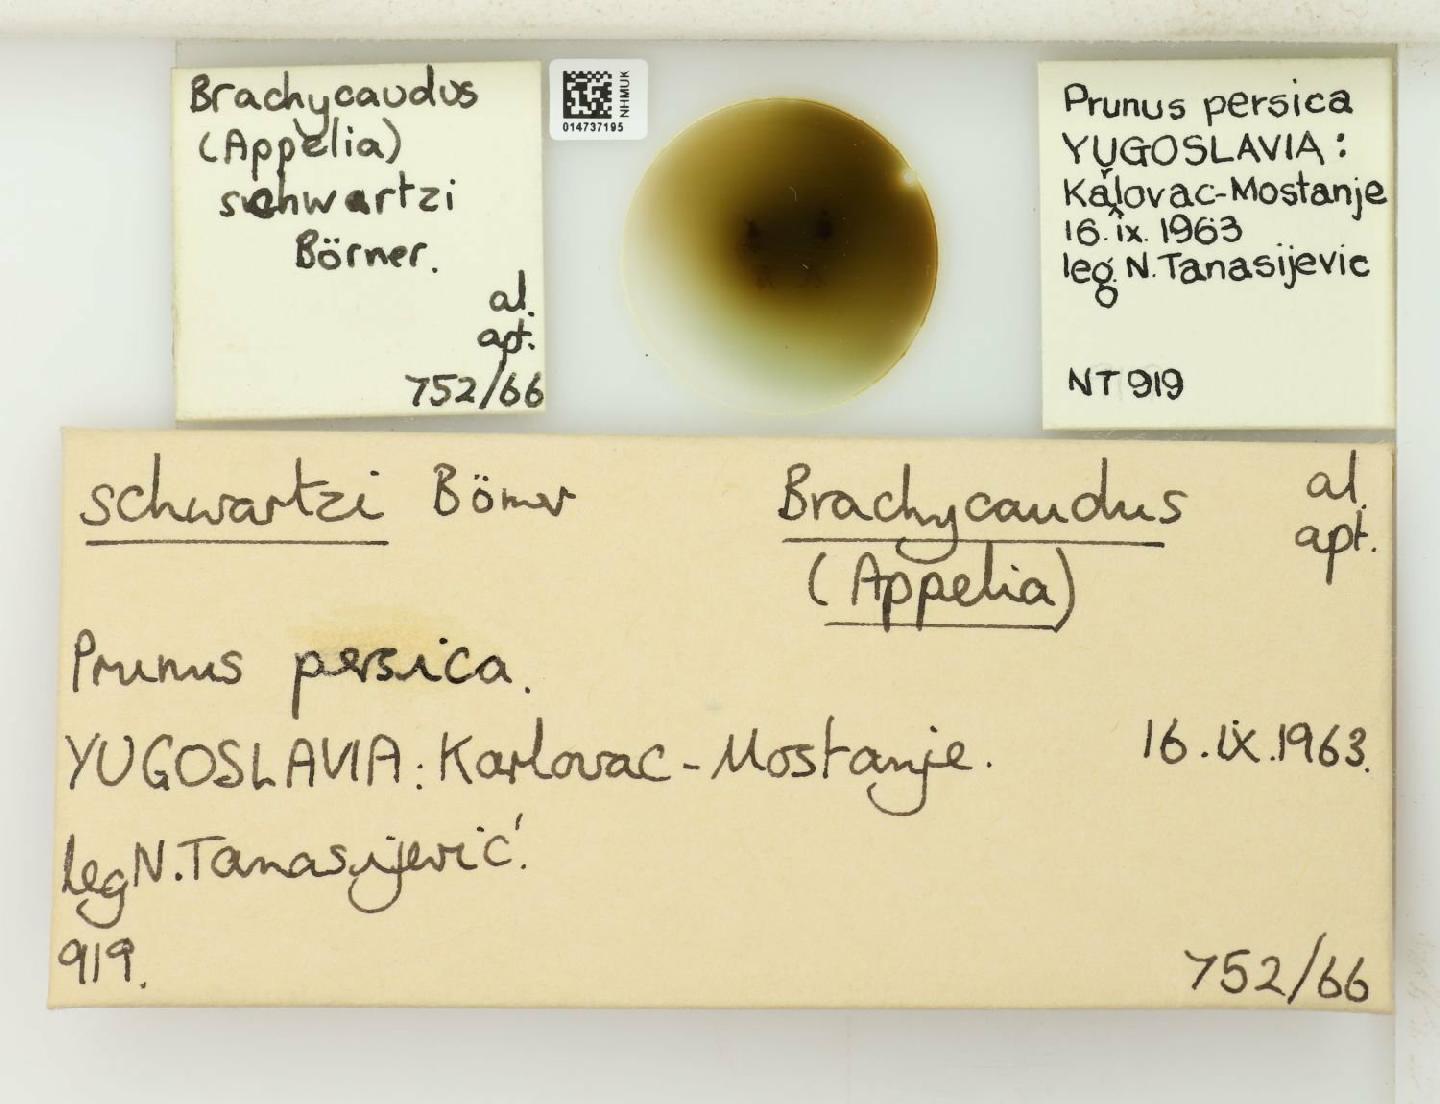 Brachycaudus
(Appelia)
schwartzi
Börner.
al.
apt.
752/66
NHMUK
014737195
Prunus persica
YUGOSLAVIA:
Karlovac-Mostanje
16.ix.1963
leg. N.Tanasijevic
NT 919
schwartzi Börner
Brachycaudus
(Appelia)
al.
apt.
Prunus persica.
YUGOSLAVIA: Karlovac-Mostanje. 16.ix.1963.
leg N.Tanasijević.
919.
752/66